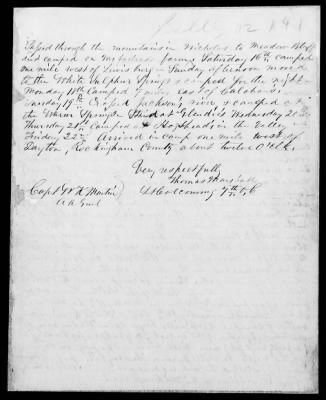 Passed through the mountains in Nicholas to Meadow Bluff
and camped on farm Saturday 16th
one mile west of Lewisburg Sunday afternoon moved
to the White Sulphur Springs & camped for the night
Monday 18th Camped 7 miles east of Calahans
Tuesday 19th Crossed Jacksons river & camped at
the Warm Springs Wednesday 20th
Thursday 21st Camped at Hogsheads in the valley
Friday 22nd Arrived in camp one mile west of
Dayton, Rockingham County about twelve O'Clk.
Very respectfully
Thomas Marshall
Lt Col commdg 7th
Capt G W Martin
A A Genl